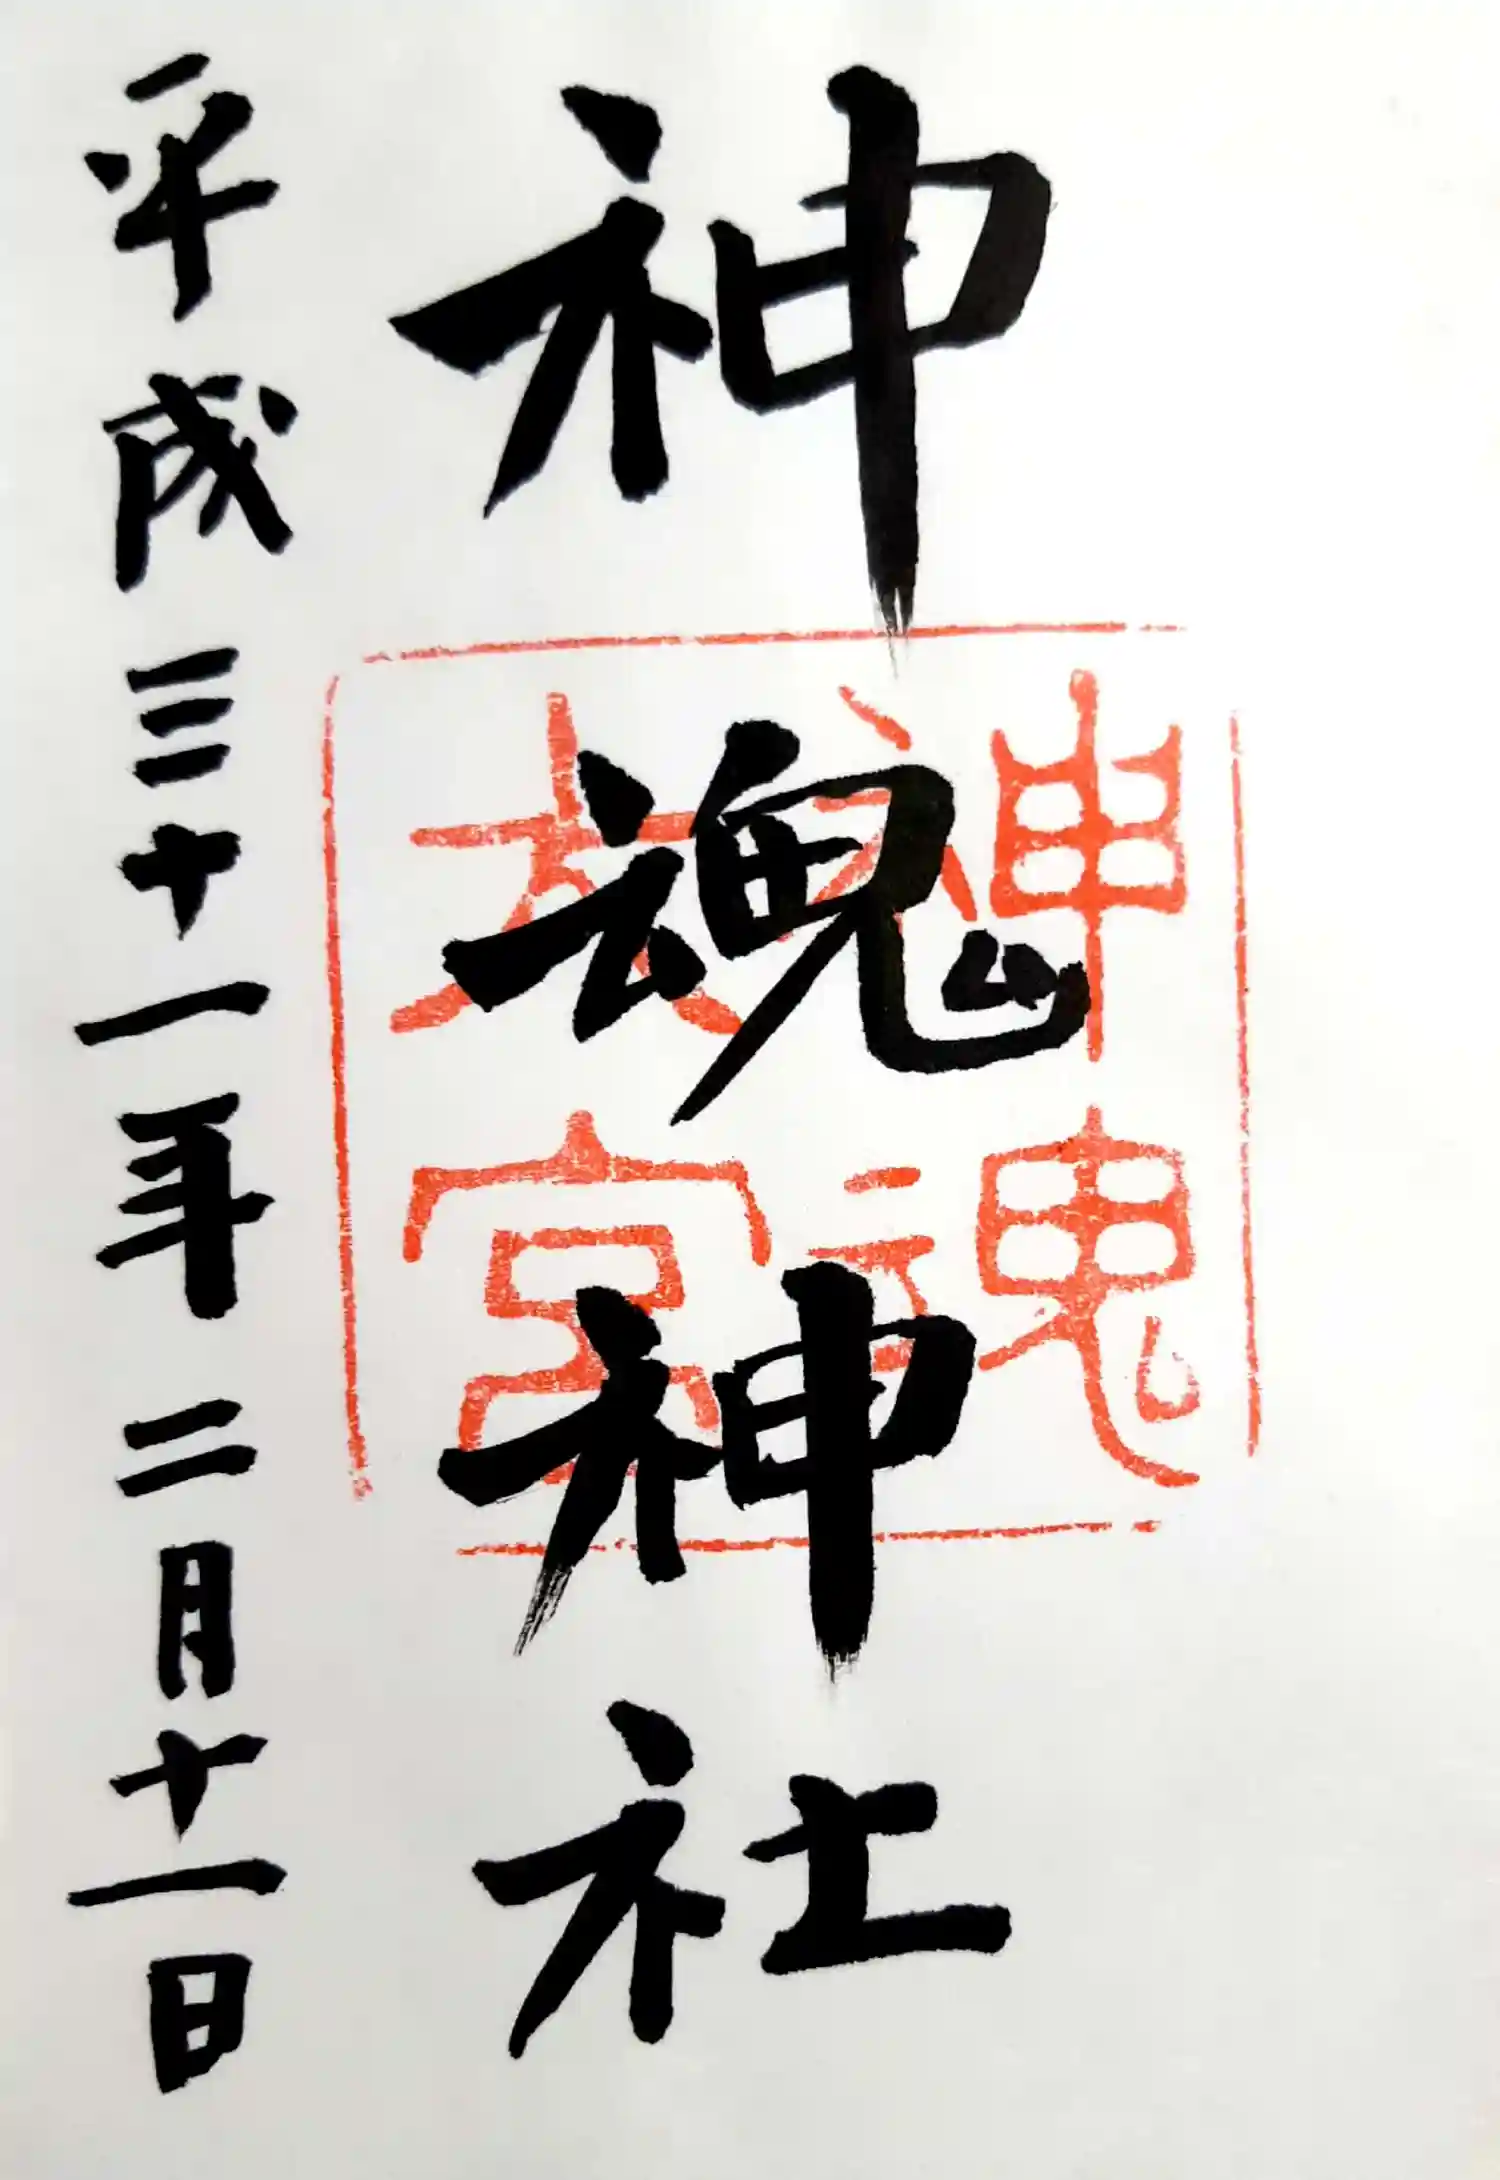 神魂神社
神魂
大宮
平成三十一年二月十一日